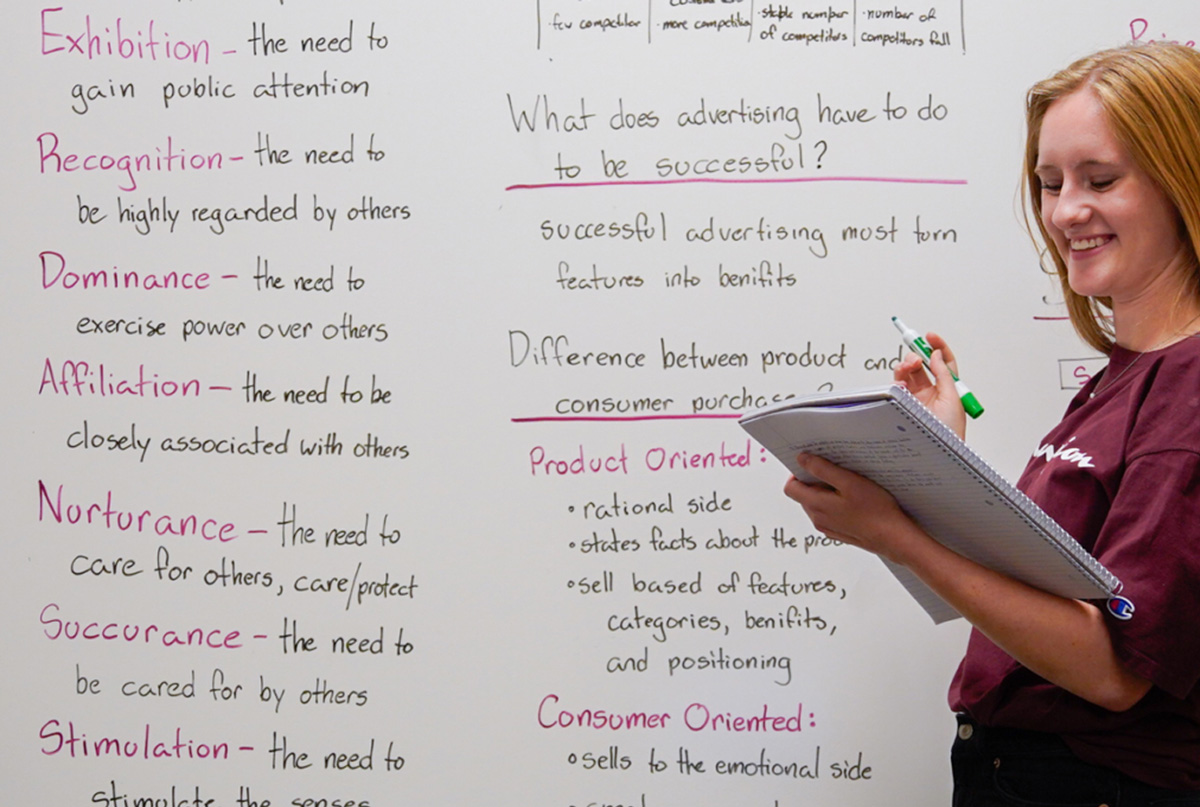 Exhibition - the need to
gain public attention
Recognition - the need to
be highly regarded by others
Dominance - the need to
exercise power over others
Affiliation - the need to be
closely associated with others
Nurturance - the need to
care for others, care/protect
Succurance - the need to
be cared for by others
Stimulation - the need to
stimulate the senses
• few competitor
• more competitio
• stable number
of competitors
• number of
compotitors fall
What does advertising have to do
to be successful?
successful advertising most turn
features into benifits
Difference between product and
consumer purchase ?
Product Oriented:
• rational side
• states facts about the
• sell based of features,
categories, benifits,
and positioning
Consumer Oriented:
• sells to the emotional side